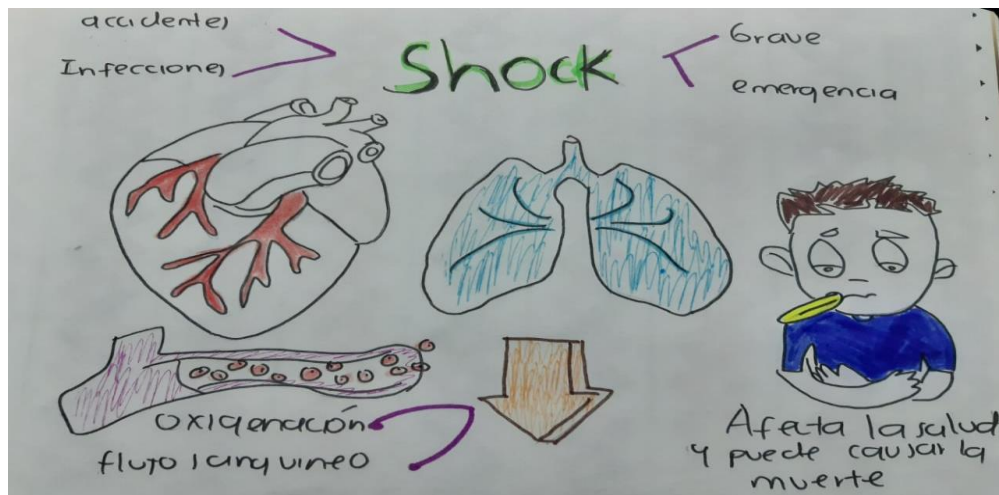 accidentes
Infecciones
Shock
Grave
emergencia
oxigenación
flujo sanguineo
Afecta la salud
y puede causar la
muerte